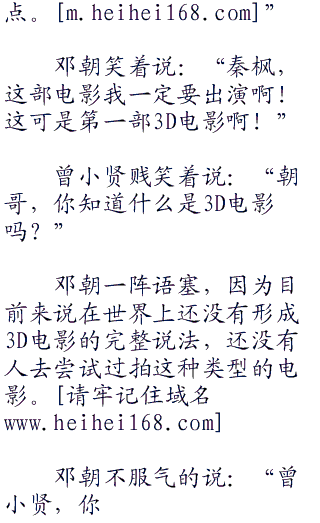 点。[m.heihei168.com]”
邓朝笑着说：“秦枫，
这部电影我一定要出演啊！
这可是第一部3D电影啊！”
曾小贤贱笑着说：“朝
哥，你知道什么是3D电影
吗？”
邓朝一阵语塞，因为目
前来说在世界上还没有形成
3D电影的完整说法，还没有
人去尝试过拍这种类型的电
影。[请牢记住域名
www.heihei168.com]
邓朝不服气的说：“曾
小贤，你